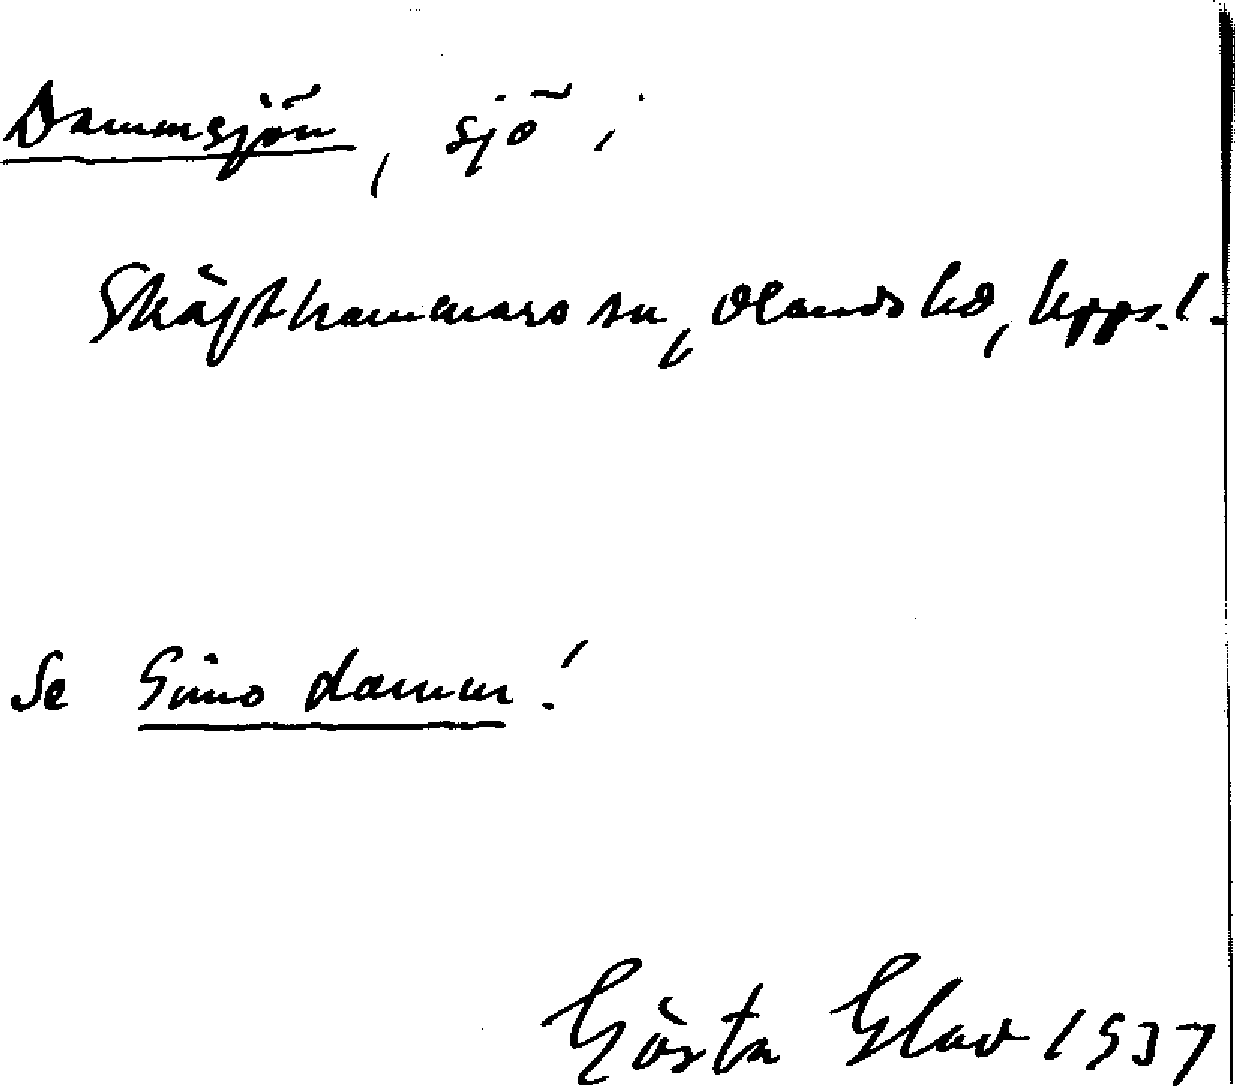 Dammsjön, sjö i
Skäfthammars sn, Olands hd, Upps. l.
Se Gimo damm!
Gösta Glav 1937